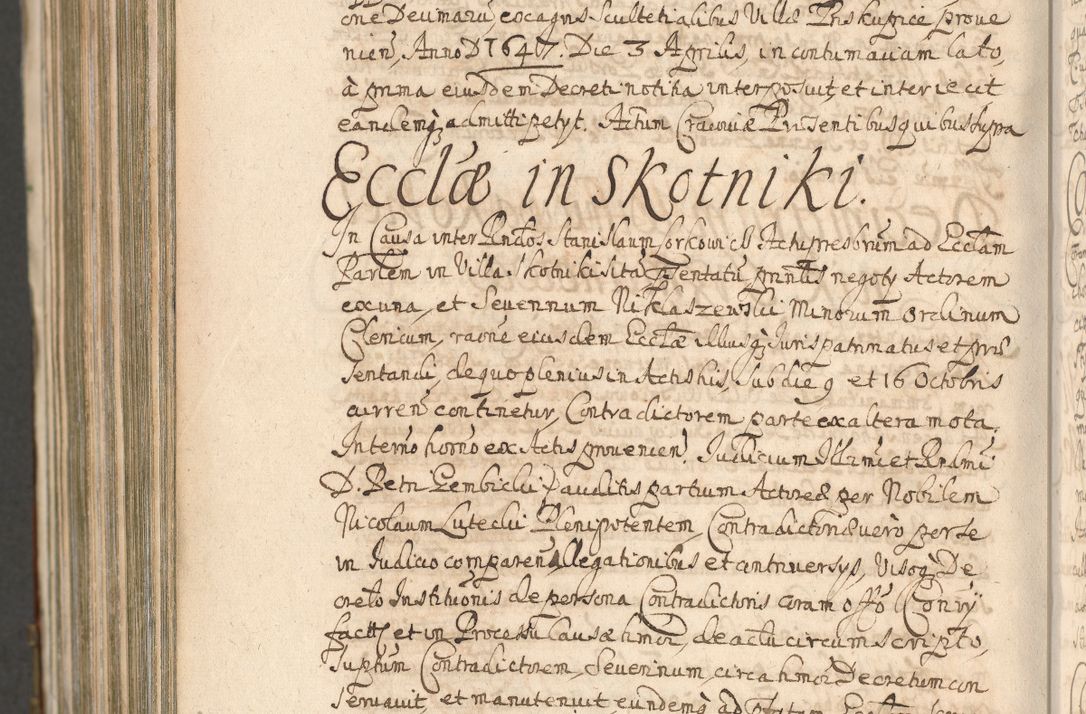 one Decimarum ex agris Scultetialibus Villæ Biskupice prove
nien, Anno D 1647. Die 3 Aprilis, in contumaciam lato,
à prima eiusdem Decreti notitia interposuit, et interiecit
eandemq; admitti petyt. Actum Cracoviæ Præsentibus quibus supra
Ecclæ in Skotniki.
In Causa inter Rndos Stanislaum Jorkowicz Actu præsbrum ad Ecclam
Parlem in Villa Skotniki sita Præsentatū pnntis negoty Actorem
ex una, et Severinum Niklaszewski Minorum Ordinum
Clericum, raōne eiusdem Ecclæ illiusq; Juris patrinatus et præ
sentandi, de quo plenius in Actis his, sub die 9 et 16 Octobris
curren continetur, Contradictorem parte ex altera mota.
In termō hornō ex Actis provenien. Judicium Illrmi et Rndmi
D. Petri Gembicki auditis partium Actoreæ per Nobilem
Nicolaum Lutecki Plenipotentem, Contradictoriæ verò per se
in Judicio comparen allegationibus et contraversys, Visoq; De
creto Institutionis de persona Contradictoris coram offō
facti, et in Processu Causæ hmoi, de actu circumscripto,
suptum Contradictorem, Severinum, circa hmoi Decretum con
servavit, et manutenuit, eundemq; ad